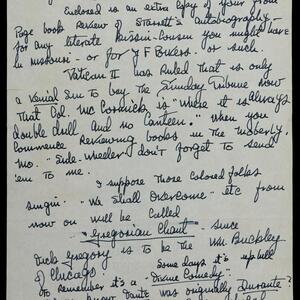 Enclosed is an extra copy of your front
Page book Review of Starrett's Autobiography -
for any literate kissin'-cousin you might have
in Missouri - or for J F Bikers - or such.
Vatican II has Ruled that is only
a venial sin to buy the Sunday Tribune now
that Col. McCormick is "where it is always
double drill and no canteen." When you
commence Reviewing books in the Moberly,
Mo. "Side-Wheeler" don't forget to send
'em to me.
I suppose those Colored folks
singin' "We Shall Overcome" - etc from
now on will be called
"Gregorian Chant" - since
Dick Gregory is to be the Wm Buckley
of Chicago. Some days it's uphill
to remember it's a "Divine Comedy".
Dante was originally Durante?